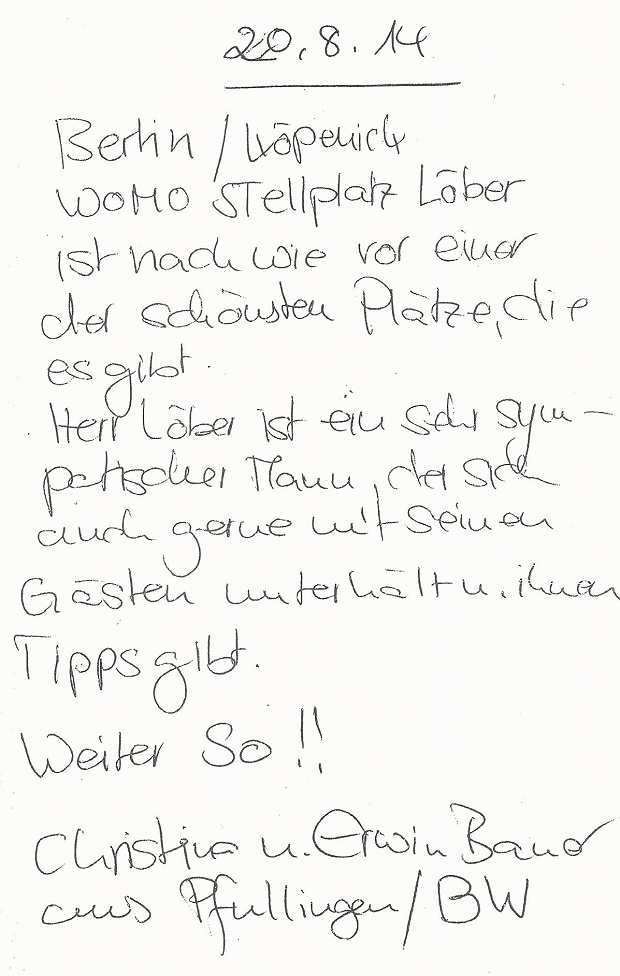 20.8.14
Berlin / Köpenick
WOMO Stellplatz Löber
ist nach wie vor einer
der schönsten Plätze, die
es gibt.
Herr Löber ist ein sehr sym-
patischer Mann, der sich
auch gerne mit seinen
Gästen unterhält u. ihnen
Tipps gibt.
Weiter So !!
Christina u. Erwin Bauer
aus Pfullingen / BW